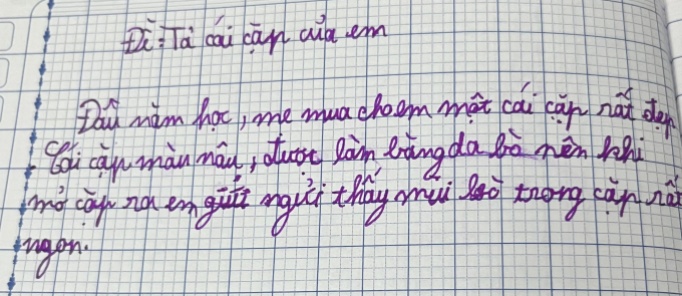 Đề: Tả cái cặp của em
Đầu năm học, mẹ mua cho em một cái cặp rất đẹp
Cái cặp màu nâu, được làm bằng da bò nên khi
mở cặp ra em ngửi thấy mùi bò trong cặp rất
ngon.